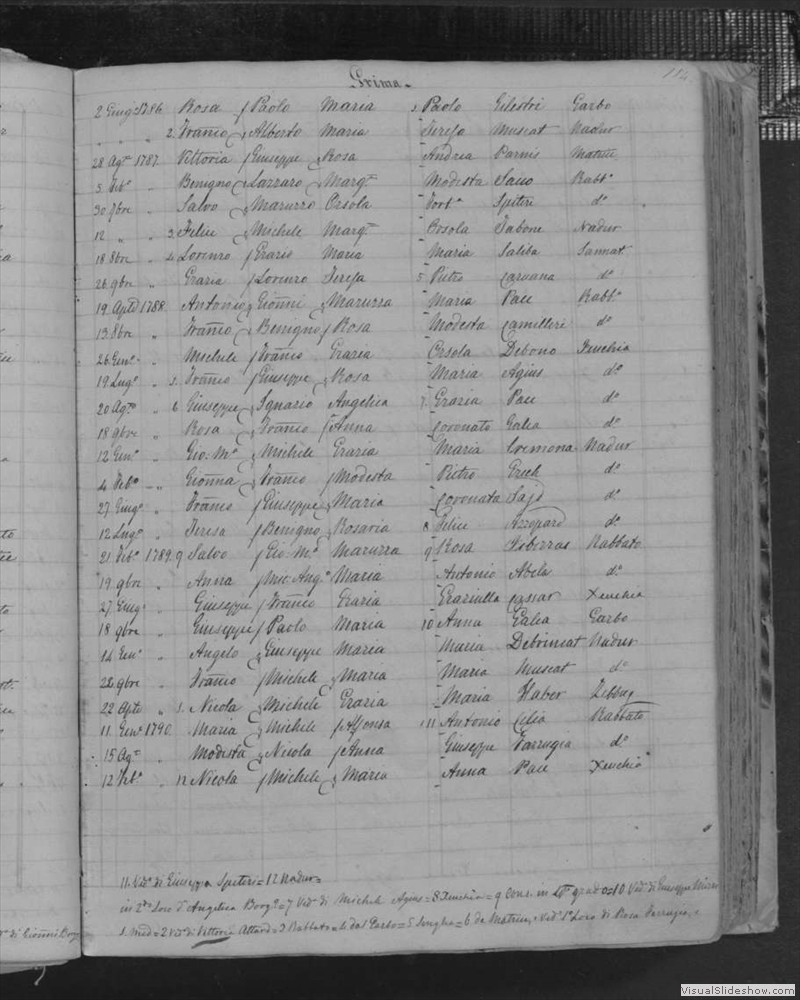 Grima.
114
2 Giug.o 1786 Rosa f Paolo Maria 1 Paolo Silestri Garbo
" " " 2 Franco Alberto Maria Teresa Muscat Nadur
28 Ag.to 1787 Vittoria f Giuseppe Rosa Andrea Parnis Matrice
5 Feb.o " Benigno Lazzaro Marg.ta Modesta Rabb.o
30 9bre " Salvo Maruzzo Orsola Fort.a Spiteri d.o
12 " " 3 Felice Michele Marg.ta Orsola Tabone Nadur
18 8bre " 4 Lorenzo Grazio Maria Maria Saliba Sannat
26 9bre " Grazia f Lorenzo Teresa 5 Pietro Caruana d.o
19 1788 Antonio Gioñni Maruzza Maria Pace Rabb.o
13 8bre " Franco Benigno f Rosa Modesta Camilleri d.o
26 Gen.o " Michele f Franco Grazia Orsola Debono Xeuchia
19 Lug.o " 5 Franco f Giuseppe Rosa Maria Agius d.o
20 Ag.to " 6 Giuseppe Ignazio Angelica 7 Grazia Pace d.o
18 9bre " Rosa Franco f Anna Coronato Galea d.o
12 Gen.o " Gio. M.a Michele Grazia Maria Cremona Nadur
4 Feb.o " Gioñna Franco f Modesta Pietro Grech d.o
27 Giug.o " Franco f Giuseppe Maria Coronata d.o
12 Lug.o " Teresa f Benigno Rosaria 8 Felice Azzopard d.o
21 Feb.o 1789 9 Salvo f Gio. M.a Maruzza 9 Rosa Rabbato
19 9bre " Anna f Mic. Ang.o Maria Antonio Abela d.o
27 Giug.o " Giuseppe f Franco Grazia Graziulla Cassar Xeuchia
18 9bre " Giuseppe f Paolo Maria 10 Anna Galea Garbo
14 Gen.o " Angelo Giuseppe Maria Maria Debrincat Nadur
22 9bre " Franco f Michele Maria Maria Muscat d.o
22 " 1. Nicola Michele Grazia Maria Haber Zebbug
11 Gen.o 1790 Maria Michele f Alfonsa 11 Antonio Celia Rabbato
15 Ag.to " Modesta Nicola f Anna Giuseppe Farrugia d.o
12 Feb.o " 12 Nicola f Michele Maria Anna Pace Xeuchia
11. Ved.o di Giuseppa Spiteri = 12 Nadur =
in 2.o d'Angelica Borg = 7 Ved.a di Michele Agius = 8 Xeuchia = 9 Cons. in 4.o grado = 10 Ved.a di Giuseppe
1. Med = 2 Ved.o di Vittoria Attard = 3 Rabbato = 4 dal Garbo = 5 Senglea = 6 da Matrice, Ved. 1.o di Rosa Farrugia
di Gioñni Borg
VisualSlideshow.com